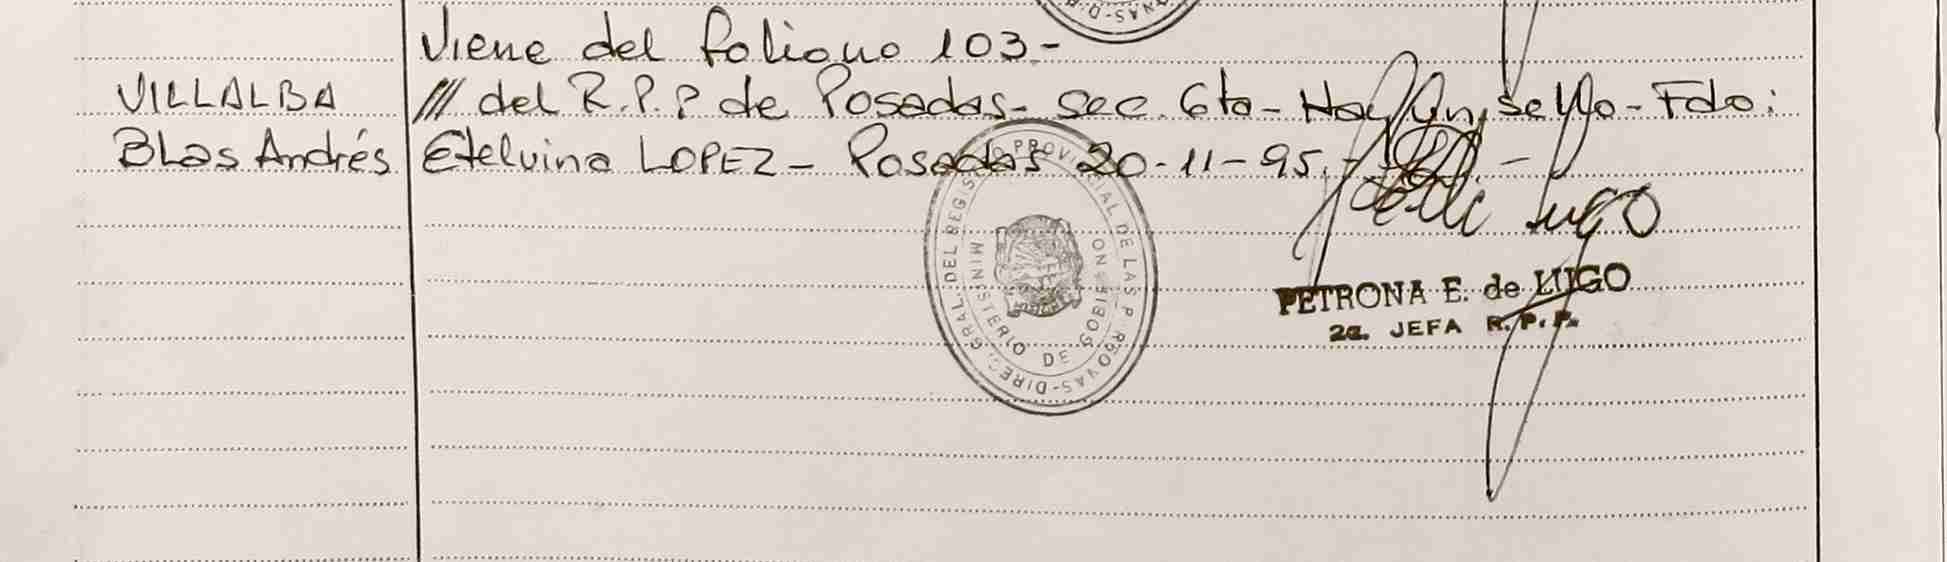 Viene del folio no 103-
VILLALBA /// del R.P.P de Posadas- sec. 6ta- Hay un sello- Fdo:
Blas Andrés Etelvina LOPEZ- Posadas 20-11-95.- -
Lugo
PETRONA E. de LUGO
2a. JEFA R.P.P.
DIREC. GRAL DEL REGISTRO PROVINCIAL DE LAS PERSONAS-
MINISTERIO DE GOBIERNO